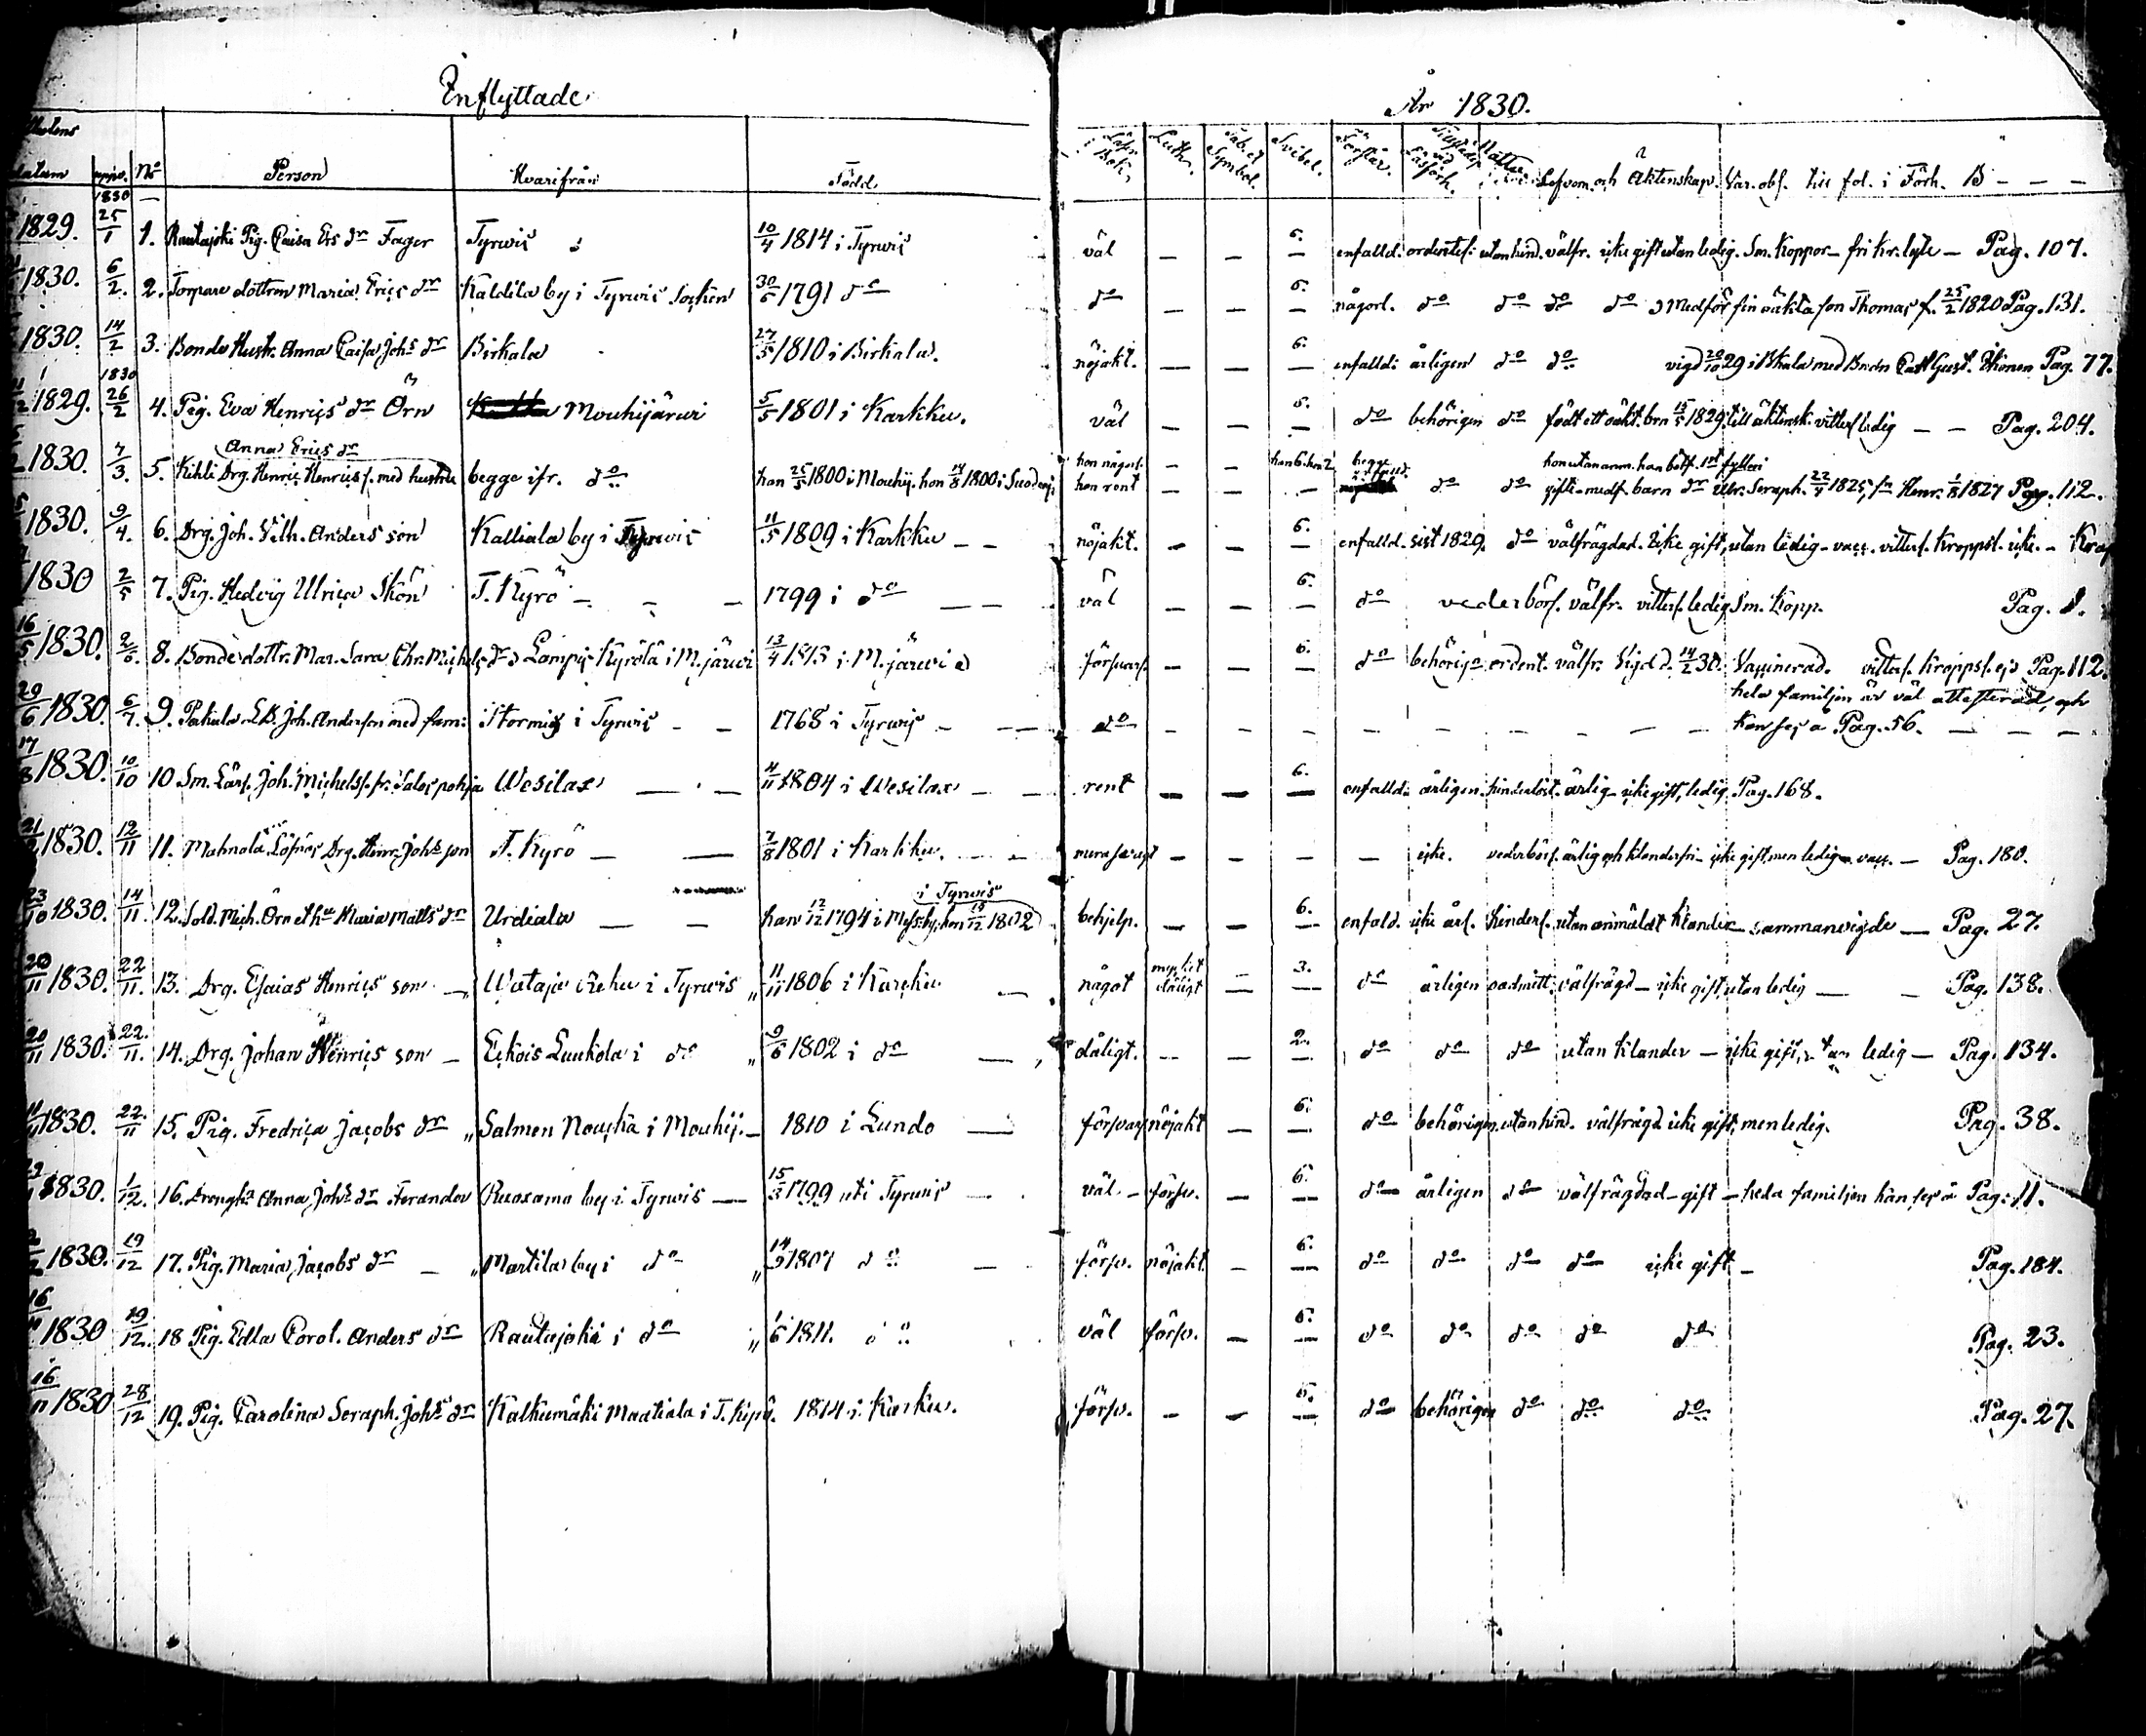 Inflyttade År 1830.
datum No Person Hvarifrån Född Luth. Symbol. Svebel. Förstår. Lefvern. och Äktenskap. Var. obs. till fol. i Förh. B - - -
1830
1829. 25/1 1. Rautajoki Pig. Caisa Ers dr Fager Tyrwis 10/4 1814 i Tyrwis väl — — 6. enfalld. ordentel: utan hind. välfr. icke gift utan ledig. Sm. Koppor — fri kr. lyte — Pag. 107.
1830. 6/2. 2. Torpare dottren Maria Erics dr Kaldila by i Tyrwis Socken 30/6 1791 do do — — 6. någorl. do do do do Medför sin oäkta son Thomas f. 25/2 1820 Pag. 131.
1830. 14/2 3. Bonde Hustr. Anna Caisa Johs dr Birkala 27/5 1810 i Birkala. nöjakt. — — 6. enfalld: årligen do do vigd 20/10 29 i Bkala med Carl Gust. Pag. 77.
1830
1829. 26/2 4. Pig. Eva Henrics dr Örn Mouhijärwi 5/5 1801 i Karkku. väl — — 6. do behörigen do födt ett oäkt. brn 15/5 1829, till äktensk. vitterl. ledig — — Pag. 204.
Anna Erics dr
1830. 7/3. 5. Kihli Drg. Henric Henricss. med hustru begge ifr. do han 25/5 1800 i Mouhij. hon 14/8 1800 i han någorl. hon rent — — han 6. hon 2 begge do do gifte - medf. barn dr Ulr. Seraph. 22/4 1825, sn Henr. 1/8 1827 Pag. 112.
1830. 9/4. 6. Drg. Joh. Vilh. Anders son Kalliala by i Tyrwis 11/5 1809 i Karkku — — nöjakt. — — 6. enfalld. sist 1829. do välfrägdad. Icke gift, utan ledig - vacc. vitterl. kroppsl. icke. —
1830 2/5 7. Pig. Hedvig Ulrica Skön T. Kyrö — — 1799 i do — — väl — — 6. do vederbörl. välfr. vitterl. ledig Sm. Kopp. Pag. 1.
16/5 1830. 2/6. 8. Bonde dottr. Mar. Sara Chr. Michels dr Lampis Kyrölä i M.järwi 13/4 1813 i M.järwi försvarl — — 6. do behörige ordent. välfr. Vigd d. 14/2 30. Vaccinerad. vitterl. kroppsl. ej Pag. 112.
hela familjen är väl attesterad, och
29/6 1830. 6/7. 9. Pakula Joh. Anderson med fam: Stormis i Tyrwis — — 1768 i Tyrwis — — do — — — — — — — — kan ses å Pag. 56. — — —
17/8 1830. 10/10 10 Sm. Lärl. Joh. Michelss. fr. Salospohja Wesilax — — 4/11 1804 i Wesilax — — rent — — 6. enfalld: årligen. hinderlöst. ärlig - icke gift, ledig. Pag. 168.
1830. 12/11 11. Mahnala Löfnäs Drg. Henr. Johs son T. Kyrö — — 7/8 1801 i Karkku. — — — — — — icke. vederbörl. ärlig och klanderfri - icke gift, men ledig - vacc. — Pag. 180.
i Tyrwis
23/10 1830. 14/11. 12. Sold. Mich. Örn et hu Maria Matts dr Urdiala — — han 12/12 1794 i hon 15/12 1802 behjelp. — — 6. enfald. icke årl. hinderl. utan anmäldt klander — sammanvigde — Pag. 27.
20/11 1830. 22/11. 13. Drg. Esaias Henrics son — Wataja Rehu i Tyrwis 11/11 1806 i Karcku — något mycket dåligt — 3. do årligen oadmitt. välfrägd — icke gift, utan ledig — — Pag. 138.
20/11 1830. 22/11. 14. Drg. Johan Henrics son — Eckois Luukola i do 9/6 1802 i do — dåligt. — — 2. do do do utan klander — icke gift, utan ledig — Pag. 134.
1830. 22/11 15. Pig. Fredrica Jacobs dr Salmen Noucka i Mouhij. — 1810 i Lundo — försvarl nöjakt — 6. do behörigen utan hind. välfrägd icke gift, men ledig. Pag. 38.
1830. 1/12. 16. Drenghu Anna Johs dr Forander Ruoxama by i Tyrwis — 15/3 1799 uti Tyrwis — väl. — försv. — 6. do årligen do välfrägdad - gift — hela familjen kan ses å Pag. 11.
1830. 19/12 17. Pig. Maria Jacobs dr — Martila by i do 14/9 1807 do — försv. nöjakt. — 6. do do do do icke gift — Pag. 184.
16 1830 19/12. 18 Pig. Edla Carol. Anders dr Rautajoki i do 1/6 1811. do väl försv. — 6. do do do do do Pag. 23.
16/11 1830 28/12 19. Pig. Carolina Seraph. Johs dr Kalkumäki Maatiala i T. Kyrö. 1814 i Karku. försv. — — 6. do behörigen do do do Pag. 27.